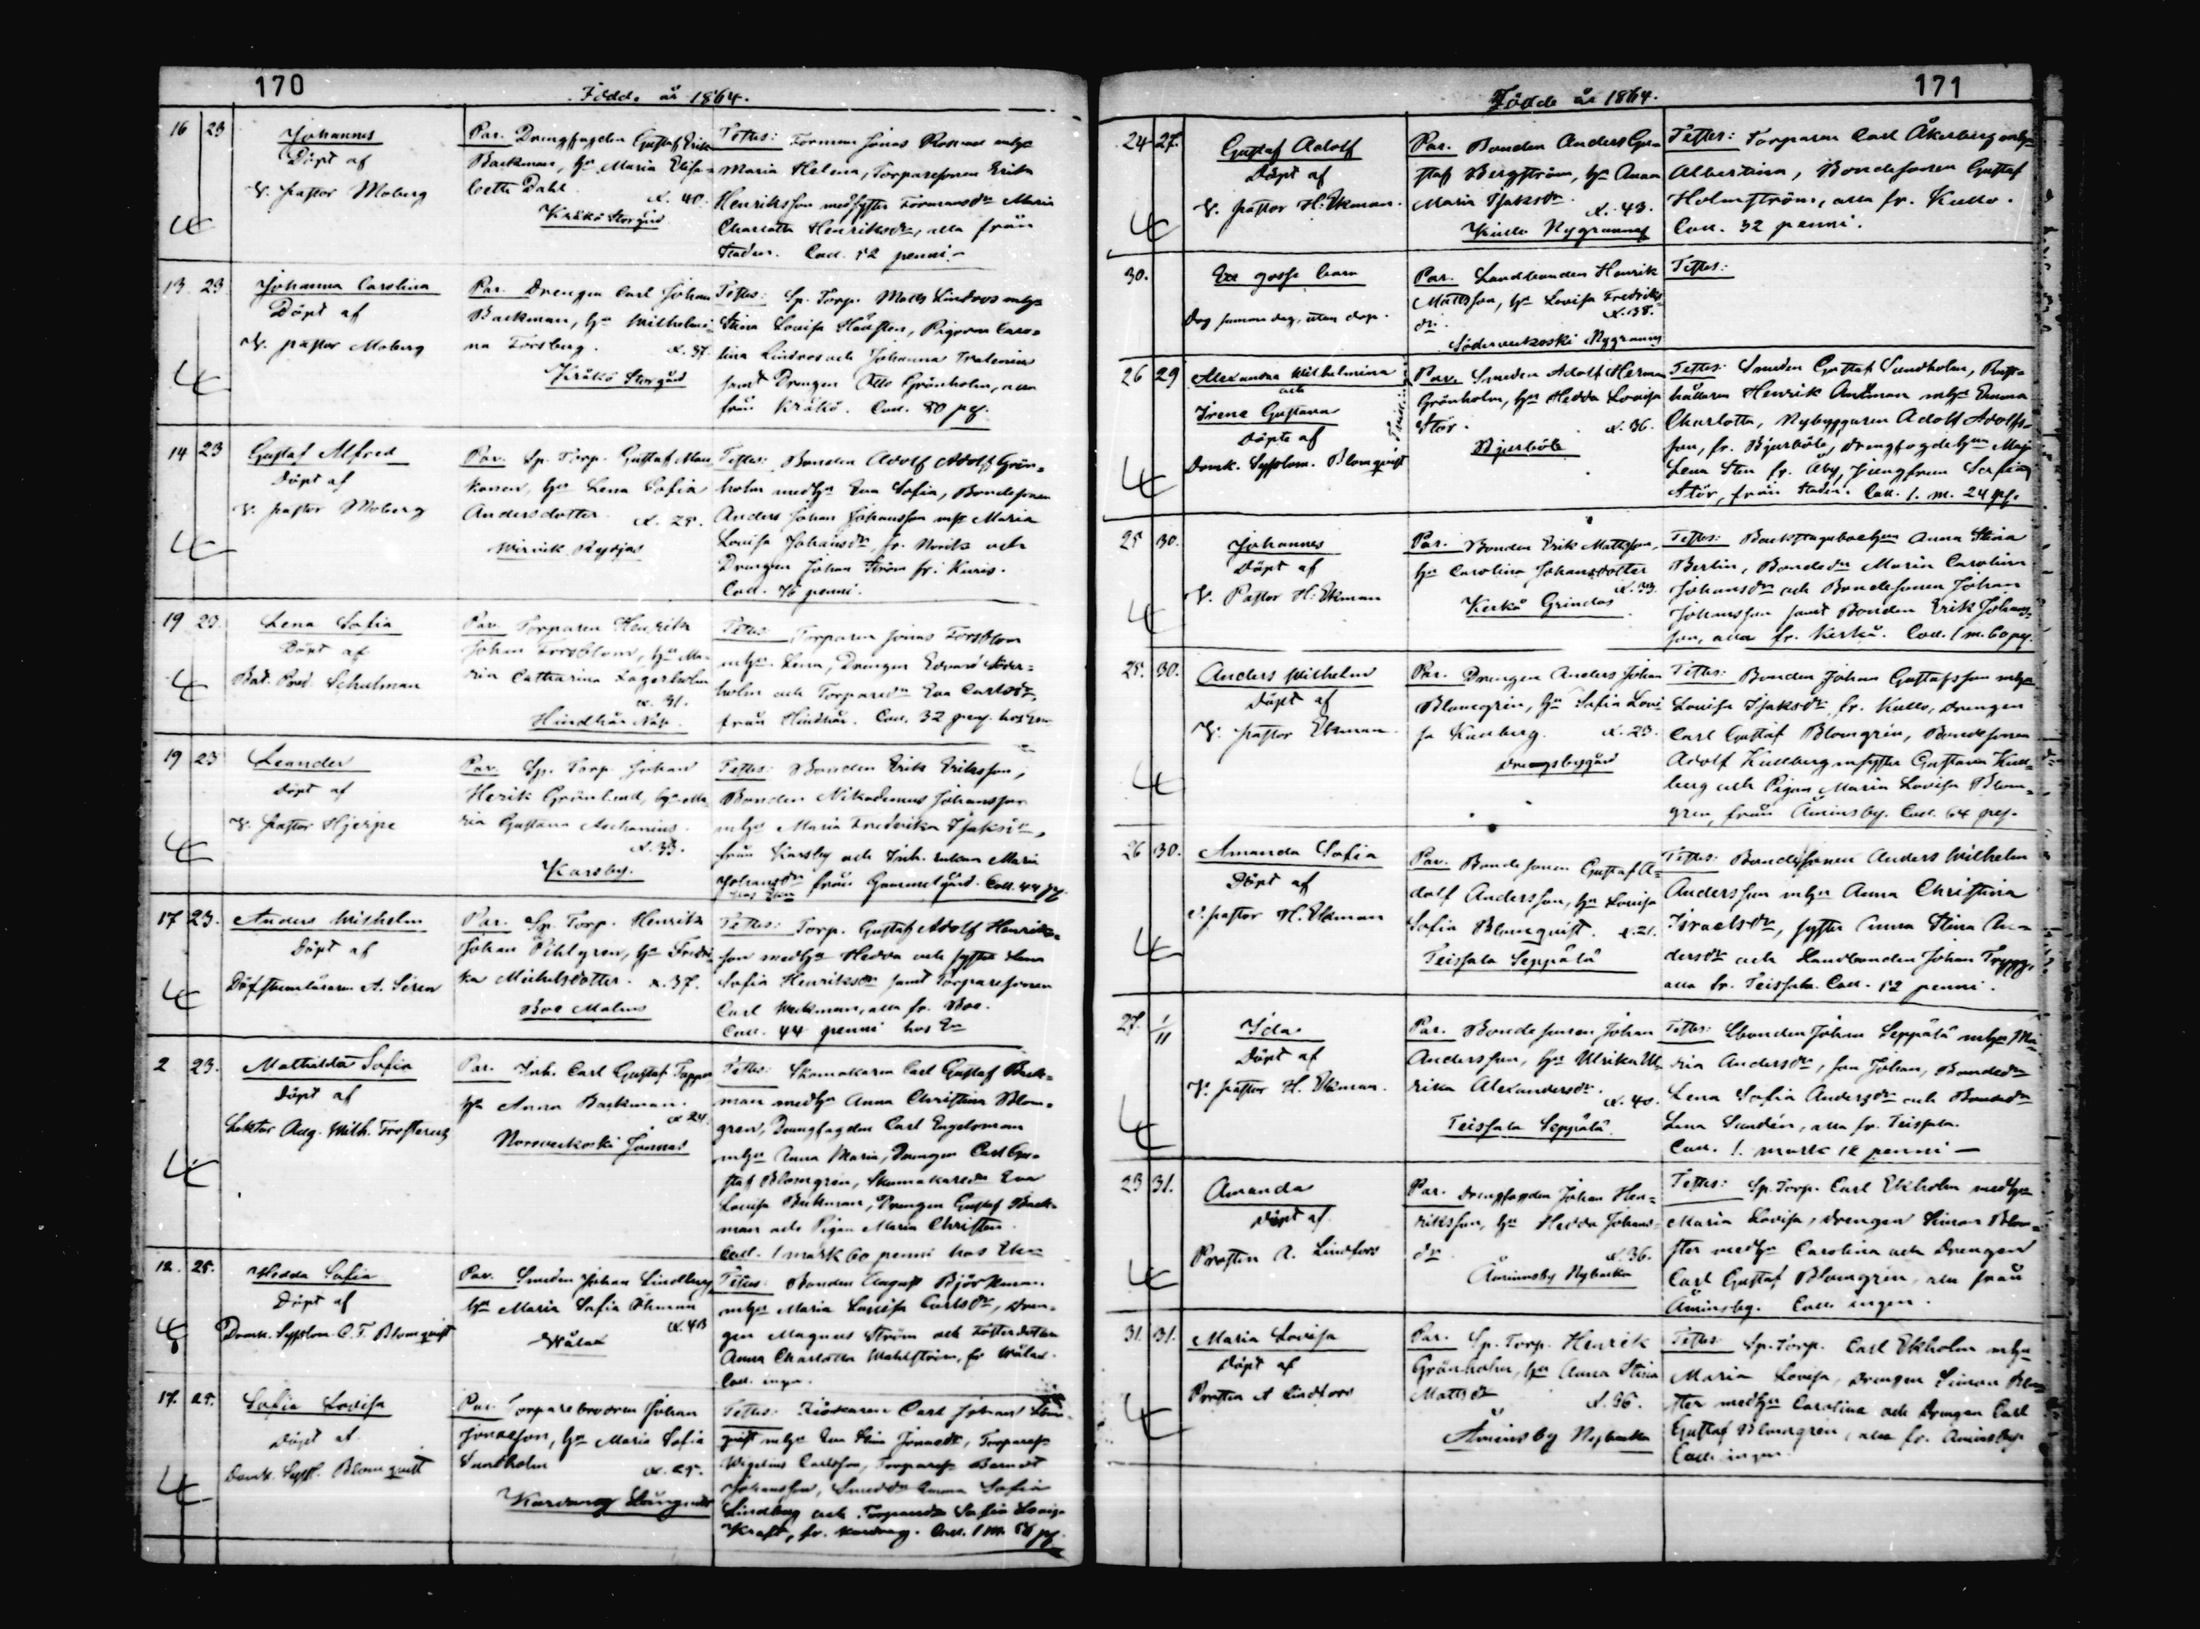 170
Födde år 1864.
16 23 Johannes
Döpt af
V. pastor Moberg
Par. Drengfogden Gustaf Erik
Backman, h:n Maria Elisa=
beth Dahl.
x. 40.
Kråkö Storgård
Testes: Forman Jonas Rosvall m h:n
Maria Helena, Torparesonen Erik
Henriksson med syster Formansd:n Maria
Charlotta Henriksd:n, alla från
Staden. Coll. 52 penni.
13. 23. Johanna Carolina
Döpt af
V. pastor Moberg
Par. Drengen Carl Johan
Backman, h:n Wilhelmi=
na Forsberg.
x. 37.
Kråkö Storgård
Testes: Sp. Torp. Matts Lindroos m h:n
Stina Lovisa, Pigorna Caro=
lina Lindroos och Johanna
samt Drengen Otto Grönholm, alla
från Kråkö. Coll. 80 pg.
14 23 Gustaf Alfred
Döpt af
V. pastor Moberg
Par. Sp. Torp. Gustaf Man
konen, h:n Lena Sofia
Andersdotter.
x. 25.
Testes: Bonden Adolf Adolf Grön=
holm med h:n Eva Sofia, Bondesonen
Anders Johan Johansson m h:n Maria
Lovisa Johansd:n, fr. och
Drengen Johan Ström fr. Kuris.
Coll. 76 penni.
19 23. Lena Sofia
Döpt af
Bat. Pred. Schulman
Par. Torparen Henrik
Johan Forsblom, h:n Ma=
ria Catharina Lagerholm
x. 31.
Hindhår Näse.
Testes: Torparen Jonas Forsblom
m h:n Lena, Drengen Edvard Söder=
holm och Torpared:n Eva Carlsd:n,
från Hindhår. Coll. 32 peng. hos
19 23 Leander
Döpt af
V. pastor Hjerpe
Par. Sp. Torp. Johan
Herik Grönlund, h:n Ma=
ria Gustava Aschanius.
x. 33.
Karsby.
Testes: Bonden Erik Eriksson,
Bonden Nikodemus Johansson
m h:n Maria Fredrika Isaksd:n,
från Karsby och Inh. enkan Maria
Johansd:n från Gammelgård. Coll. 44 pg.
17 23. Anders Wilhelm
Döpt af
Döfstumläraren A. Sirén
Par. Sp. Torp. Henrik
Johan Pihlgren, h:n Fredri
ka Mickelsdotter.
x. 37.
Boe Malms
Testes: Torp. Gustaf Adolf Henriks=
son med h:n Hedda och syster Lena
Sofia Henriksd:n samt Torparesonen
Carl Weckman, alla fr. Boe.
Coll. 44 penni hos
2 23. Mathilda Sofia
Döpt af
Lektor Aug. Wilh.
Par. Inh. Carl Gustaf
h:n Anna Backman.
x 24.
Norrveckoski Jönnas
Testes: Skomakaren Carl Gustaf Back=
man med h:n Anna Christina Blom=
gren, Drengfogden Carl Engelsman
m h:n Anna Maria, Drengen Carl Gu=
staf Blomgren, Skomakared:n Eva
Lovisa Backman, Drengen Gustaf Back=
man och Pigan Maria Christin
Coll. 1 mark 60 penni hos
12. 25. Hedda Sofia
Döpt af
Domk. Sysslom. C. F. Blomqvist
Par. Smeden Johan Lindberg
h:n Maria Sofia Öhman
x. 43
Wålax
Testes: Bonden August Björkman
m h:n Maria Lovisa Carlsd:n, Dren=
gen Magnus Ström och Fosterdottern
Anna Charlotta Wahlström, fr Wålax.
Coll. ingen.
17. 25. Sofia Lovisa
Döpt af
Domk. Syssl. Blomqvist
Par. Torparebrodren Johan
Jonasson, h:n Maria Sofia
Sundholm
x. 25.
Testes: Fiskaren Carl Johan
m h:n Eva Stina Jonasd:n, Torpares.
Carlsson, Torpares.
Johansson, Smedd:n Emma Sofia
Lindberg och Torpared:n Sofia Lovisa
Kraft, fr. Kardrag. Coll. 1 m.
171
Födde år 1864.
24 27. Gustaf Adolf
Döpt af
V. pastor H. Ekman.
Par. Bonden Anders Gu=
staf Bergström, h:n Anna
Maria Isaksd:n.
x. 43.
Kullo Nygrannas
Testes: Torparen Carl Åkerberg m h:n
Albertina, Bondesonen Gustaf
Holmström, alla fr. Kullo.
Coll. 32 penni.
30. Ett gosse barn
Dog samma dag, utan dop.
Par. Landbonden Henrik
Mattsson, h:n Lovisa Fredriks
d:n.
x. 38.
Söderveckoski Nygranns
Testes:
26 29 Alexandra Wilhelmina
och
Irene Gustava
Döpte af
Domk. Sysslom. Blomqvist
Par. Smeden Adolf Herman
Grönholm, h:n Hedda Lovisa
Stör.
x. 36.
Bjurböle
Testes: Smeden Gustaf Sundholm, Rust=
hållaren Henrik Antman m h:n Emma
Charlotta, Nybyggaren Adolf Adolfs=
son, fr. Bjurböle, Drengfogdeh:n Maja
Lena Sten fr. Åby, Jungfrun Serafina
Stör, från Staden. Coll. 1. m. 24 pg.
25 30. Johannes
Döpt af
V. Pastor H. Ekman
Par. Bonden Erik Mattsson,
h:n Carolina Johansdotter
x. 33.
Kerkö Grindas
Testes: Backstugubo h:n Anna Stina
Berlin, Bonded:n Maria Carolina
Johansd:n och Bondesonen Johan
Johansson samt Bonden Erik Johans=
son, alla fr. Kerkö. Coll. 1 m. 60 pg.
25. 30. Anders Wilhelm
Döpt af
V. pastor Ekman.
Par. Drengen Anders Johan
Blomgrén, h:n Sofia Lovi
sa Kullberg.
x. 23.
Drengsbygård
Testes: Bonden Johan Gustafsson m h:n
Lovisa Isaksd:n fr. Kullo, Drengen
Carl Gustaf Blomgrén, Bondesonen
Adolf Kullberg m syster Gustava Kull=
berg och Pigan Maria Lovisa Blom=
gren, från Äminsby. Coll. 64 peg.
26 30. Amanda Sofia
Döpt af
V. pastor H. Ekman
Par. Bondesonen Gustaf A=
dolf Andersson, h:n Lovisa
Sofia Blomqvist.
x. 21.
Teissala Seppälä
Testes: Bondesonen Anders Wilhelm
Andersson m h:n Anna Christina
Israelsd:n, syster Anna Stina An=
dersd:n och Landbonden Johan Trygg,
alla fr. Teissala. Coll. 52 penni.
27. 1/11 Ida
Döpt af
V. pastor H. Ekman.
Par. Bondesonen Johan
Andersson, h:n Ulrika Ul
rika Alexandersd:n.
x. 40.
Teissala Seppälä
Testes: Lbonden Johan Seppälä m h:n Ma=
ria Andersd:n, son Johan, Bonded:n
Lena Sofia Andersd:n och Bonded:n
Lena Sundén, alla fr. Teissala.
Coll. 1. mark 12 penni
23 31. Amanda
Döpt af.
Prosten A. Lindfors
Par. Drengfogden Johan Hen=
riksson, h:n Hedda Johans=
d:n
x. 36.
Äminsby Nybacka
Testes: Sp. Torp. Carl Ekholm med h:n
Maria Lovisa, Drengen Simon Blom=
ster med h:n Carolina och Drengen
Carl Gustaf Blomgrén, alla från
Äminsby. Coll. ingen.
31. 31. Maria Lovisa
Döpt af
Prosten A Lindfors
Par. Sp. Torp. Henrik
Grönholm, h:n Anna Stina
Mattsd:n
x. 36.
Äminsby Nybacka
Testes: Sp. Torp. Carl Ekholm m h:n
Maria Lovisa, Drengen Simon Blom=
ster med h:n Carolina och Drengen Carl
Gustaf Blomgren, alla fr. Äminsby.
Coll. ingen.